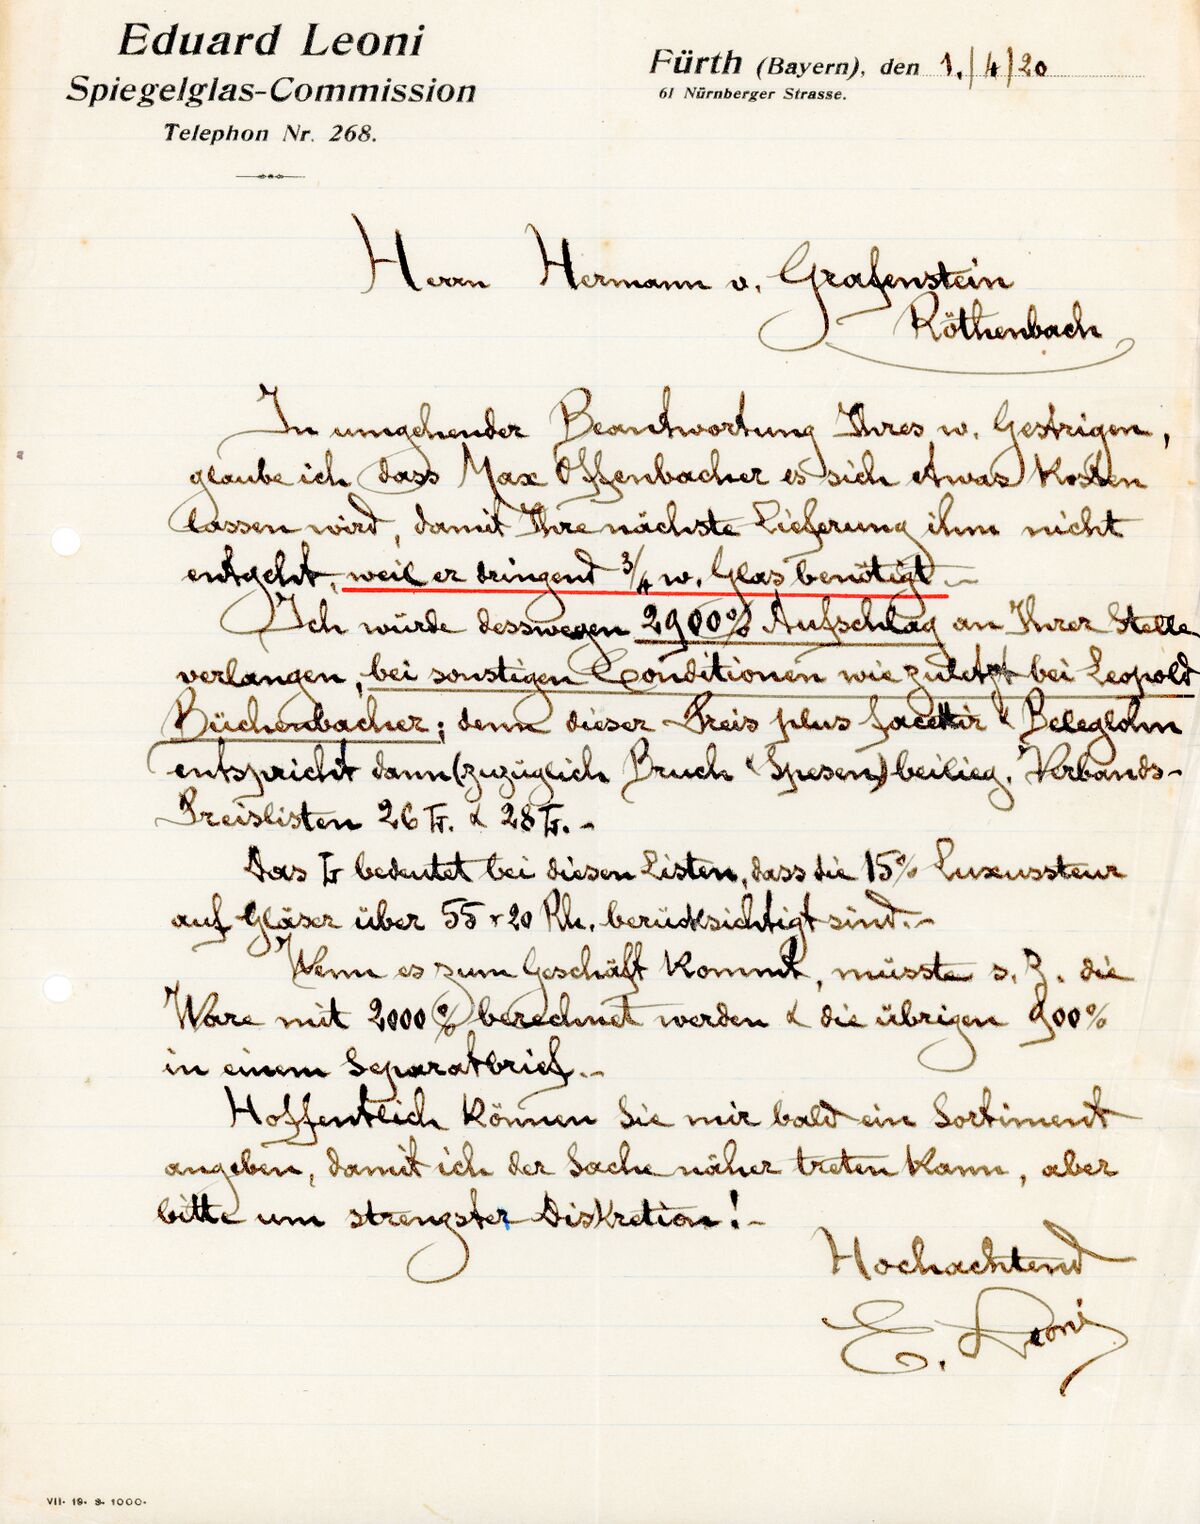 Eduard Leoni
Spiegelglas-Commission
Telephon Nr. 268.
Fürth (Bayern), den 1./4/20
61 Nürnberger Strasse.
Herrn Hermann v. Grafenstein
Röthenbach
In umgehender Beantwortung Ihres w. Gestrigen,
glaube ich dass Max Offenbacher es sich etwas kosten
lassen wird, damit Ihre nächste Lieferung ihm nicht
entgeht, weil er dringend 3/4 w. Glas benötigt.-
Ich würde desswegen 2900% Aufschlag an Ihrer Stelle
verlangen, bei sonstigen Conditionen wie zuletzt bei Leopold
Büchenbacher; denn dieser Preis plus facettir & Beleglohn
entspricht dann (zuzüglich Bruch & Spesen) beilieg. Verbands-
Preislisten 26 Tr. & 28 Tr.-
Das Tr bedeutet bei diesen Listen, dass die 15% Luxussteur
auf Gläser über 55 + 20 Rh. berücksichtigt sind.-
Wenn es zum Geschäft kommt, müsste s. Z. die
Ware mit 2000% berechnet werden & die übrigen 900%
in einem Separatbrief.-
Hoffentlich können Sie mir bald ein Sortiment
angeben, damit ich der Sache näher treten kann, aber
bitte um strengster Diskretion!-
Hochachtend
E. Leoni
VII. 19. S. 1000.